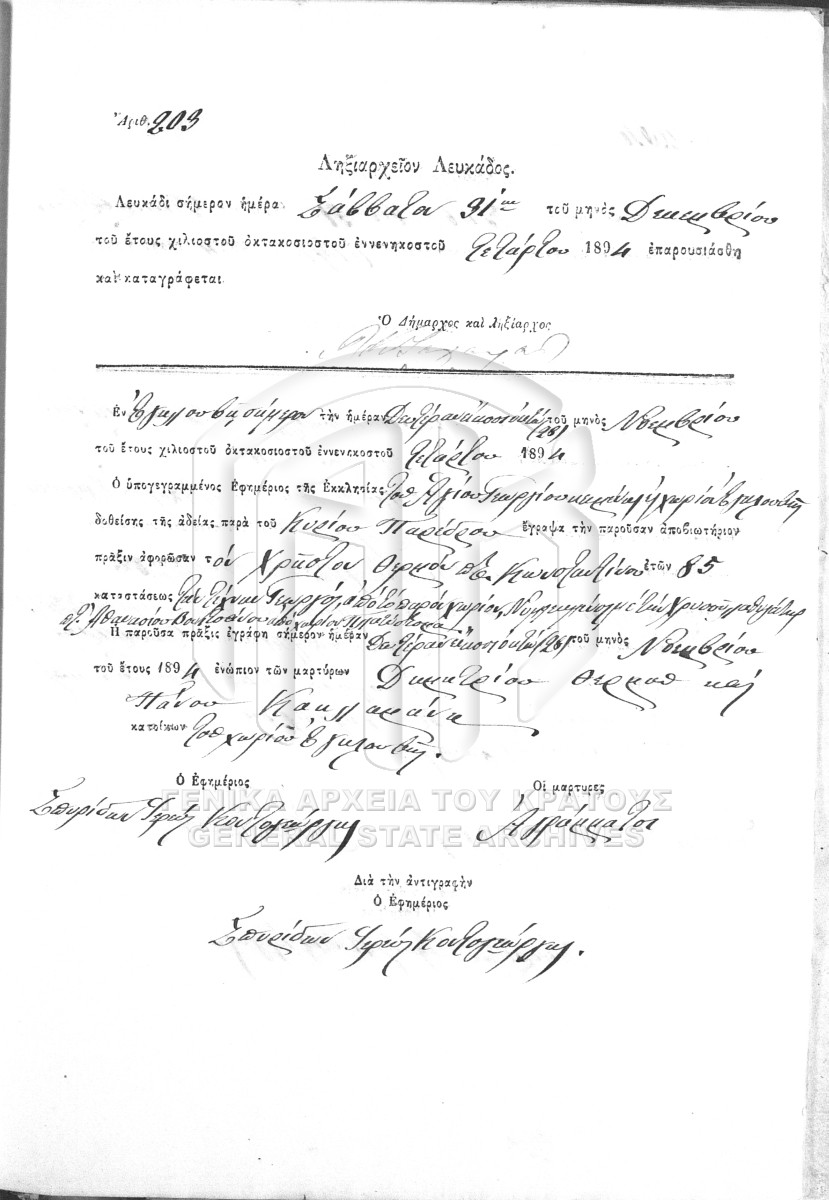 Ἀριθ. 203
Ληξιαρχεῖον Λευκάδος.
Λευκάδι σήμερον ἡμέρα Σάββατον 31ην τοῦ μηνὸς Δεκεμβρίου
τοῦ ἔτους χιλιοστοῦ ὀκτακοσιοστοῦ ἐννενηκοστοῦ τετάρτου 1894 ἐπαρουσιάσθη
καὶ καταγράφεται
Ὁ Δήμαρχος καὶ Ληξίαρχος
Ἐν Ἐγκλουβῇ σήμερον τὴν ἡμέραν Δευτέραν εἰκοστὴν ὀκτὼ (28) τοῦ μηνὸς Νοεμβρίου
τοῦ ἔτους χιλιοστοῦ ὀκτακοσιοστοῦ ἐννενηκοστοῦ τετάρτου 1894
Ὁ ὑπογεγραμμένος Ἐφημέριος τῆς Ἐκκλησίας τοῦ Ἁγίου Γεωργίου χωρίου Ἐγκλουβῆς
δοθείσης τῆς ἀδείας παρὰ τοῦ Κυρίου Παρέδρου ἔγραψα τὴν παροῦσαν ἀποβιωτήριον
πρᾶξιν ἀφορῶσαν τὸν Χρῆστον Θερμὸν Κωνσταντίνου ἐτῶν 85
καταστάσεως τὴν τέχνην Γεωργὸς ἀπὸ τὸ παρὸν χωρίον
Ἀθανασίου χωρίου
Ἡ παροῦσα πρᾶξις ἐγράφη σήμερον ἡμέραν Δευτέραν εἰκοστὴν ὀκτὼ (28) τοῦ μηνὸς Νοεμβρίου
τοῦ ἔτους 1894 ἐνώπιον τῶν μαρτύρων Δημητρίου Θερμοῦ καὶ
Πάνου
κατοίκων τοῦ χωρίου Ἐγκλουβῆς.
Ὁ Ἐφημέριος Οἱ μαρτυρες
Σπυρίδων Ἱερεὺς Κοντογεώργης Ἀγράμματοι
ΓΕΝΙΚΑ ΑΡΧΕΙΑ ΤΟΥ ΚΡΑΤΟΥΣ
GENERAL STATE ARCHIVES
Διὰ τὴν ἀντιγραφὴν
Ὁ Ἐφημέριος
Σπυρίδων Ἱερεὺς Κοντογεώργης.